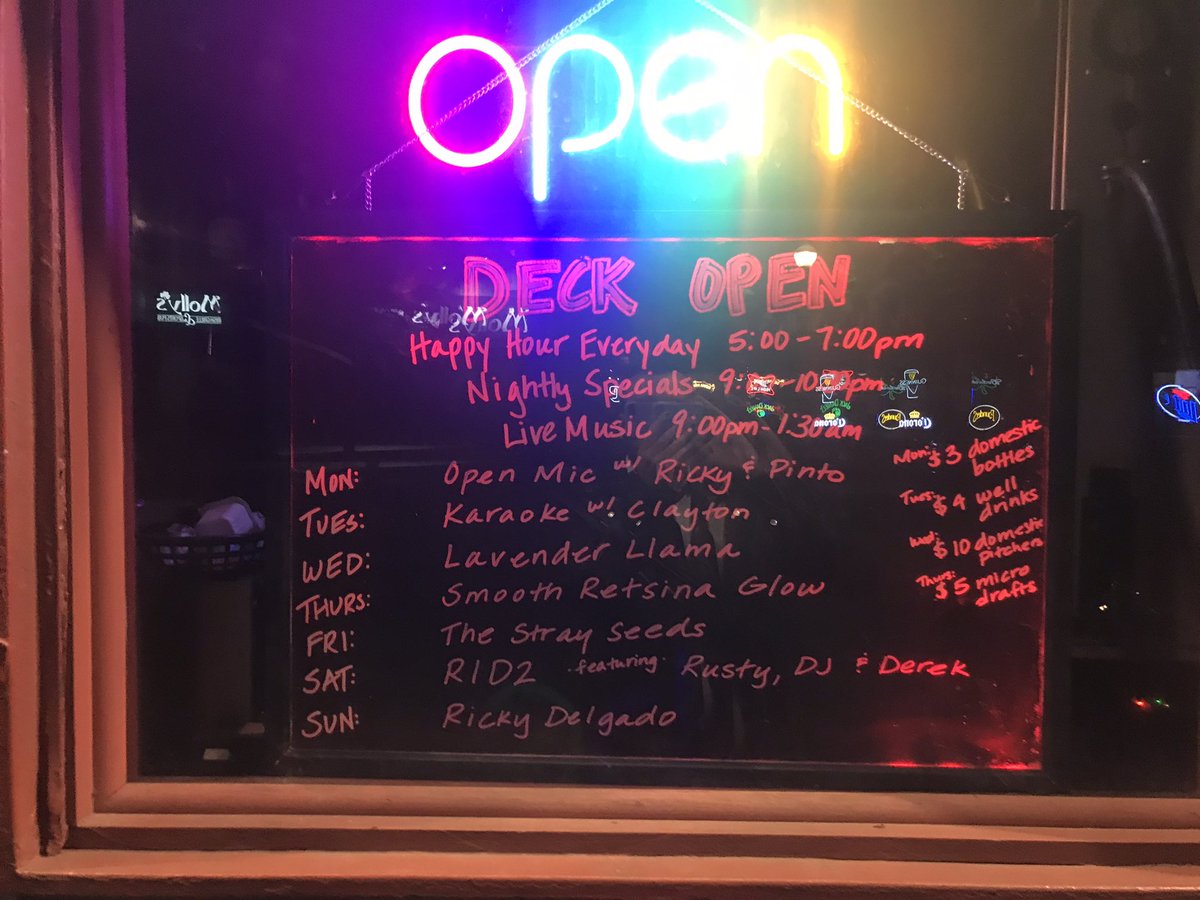 open
DECK OPEN
Happy Hour Everyday 5:00-7:00pm
Nightly Specials
Live Music 9:00pm-1:30am
MON: Open Mic w/ Ricky & Pinto
TUES: Karaoke w/ Clayton
WED: Lavender Llama
THURS: Smooth Retsina Glow
FRI: The Stray Seeds
SAT: RID2 featuring Rusty, DJ & Derek
SUN: Ricky Delgado
Mon: $3 domestic
bottles
Tues: $4 well
drinks
Wed: $10 domestic
Pitchers
Thurs: $5 micro
drafts
Molly's
Molly's
Corona
Corona